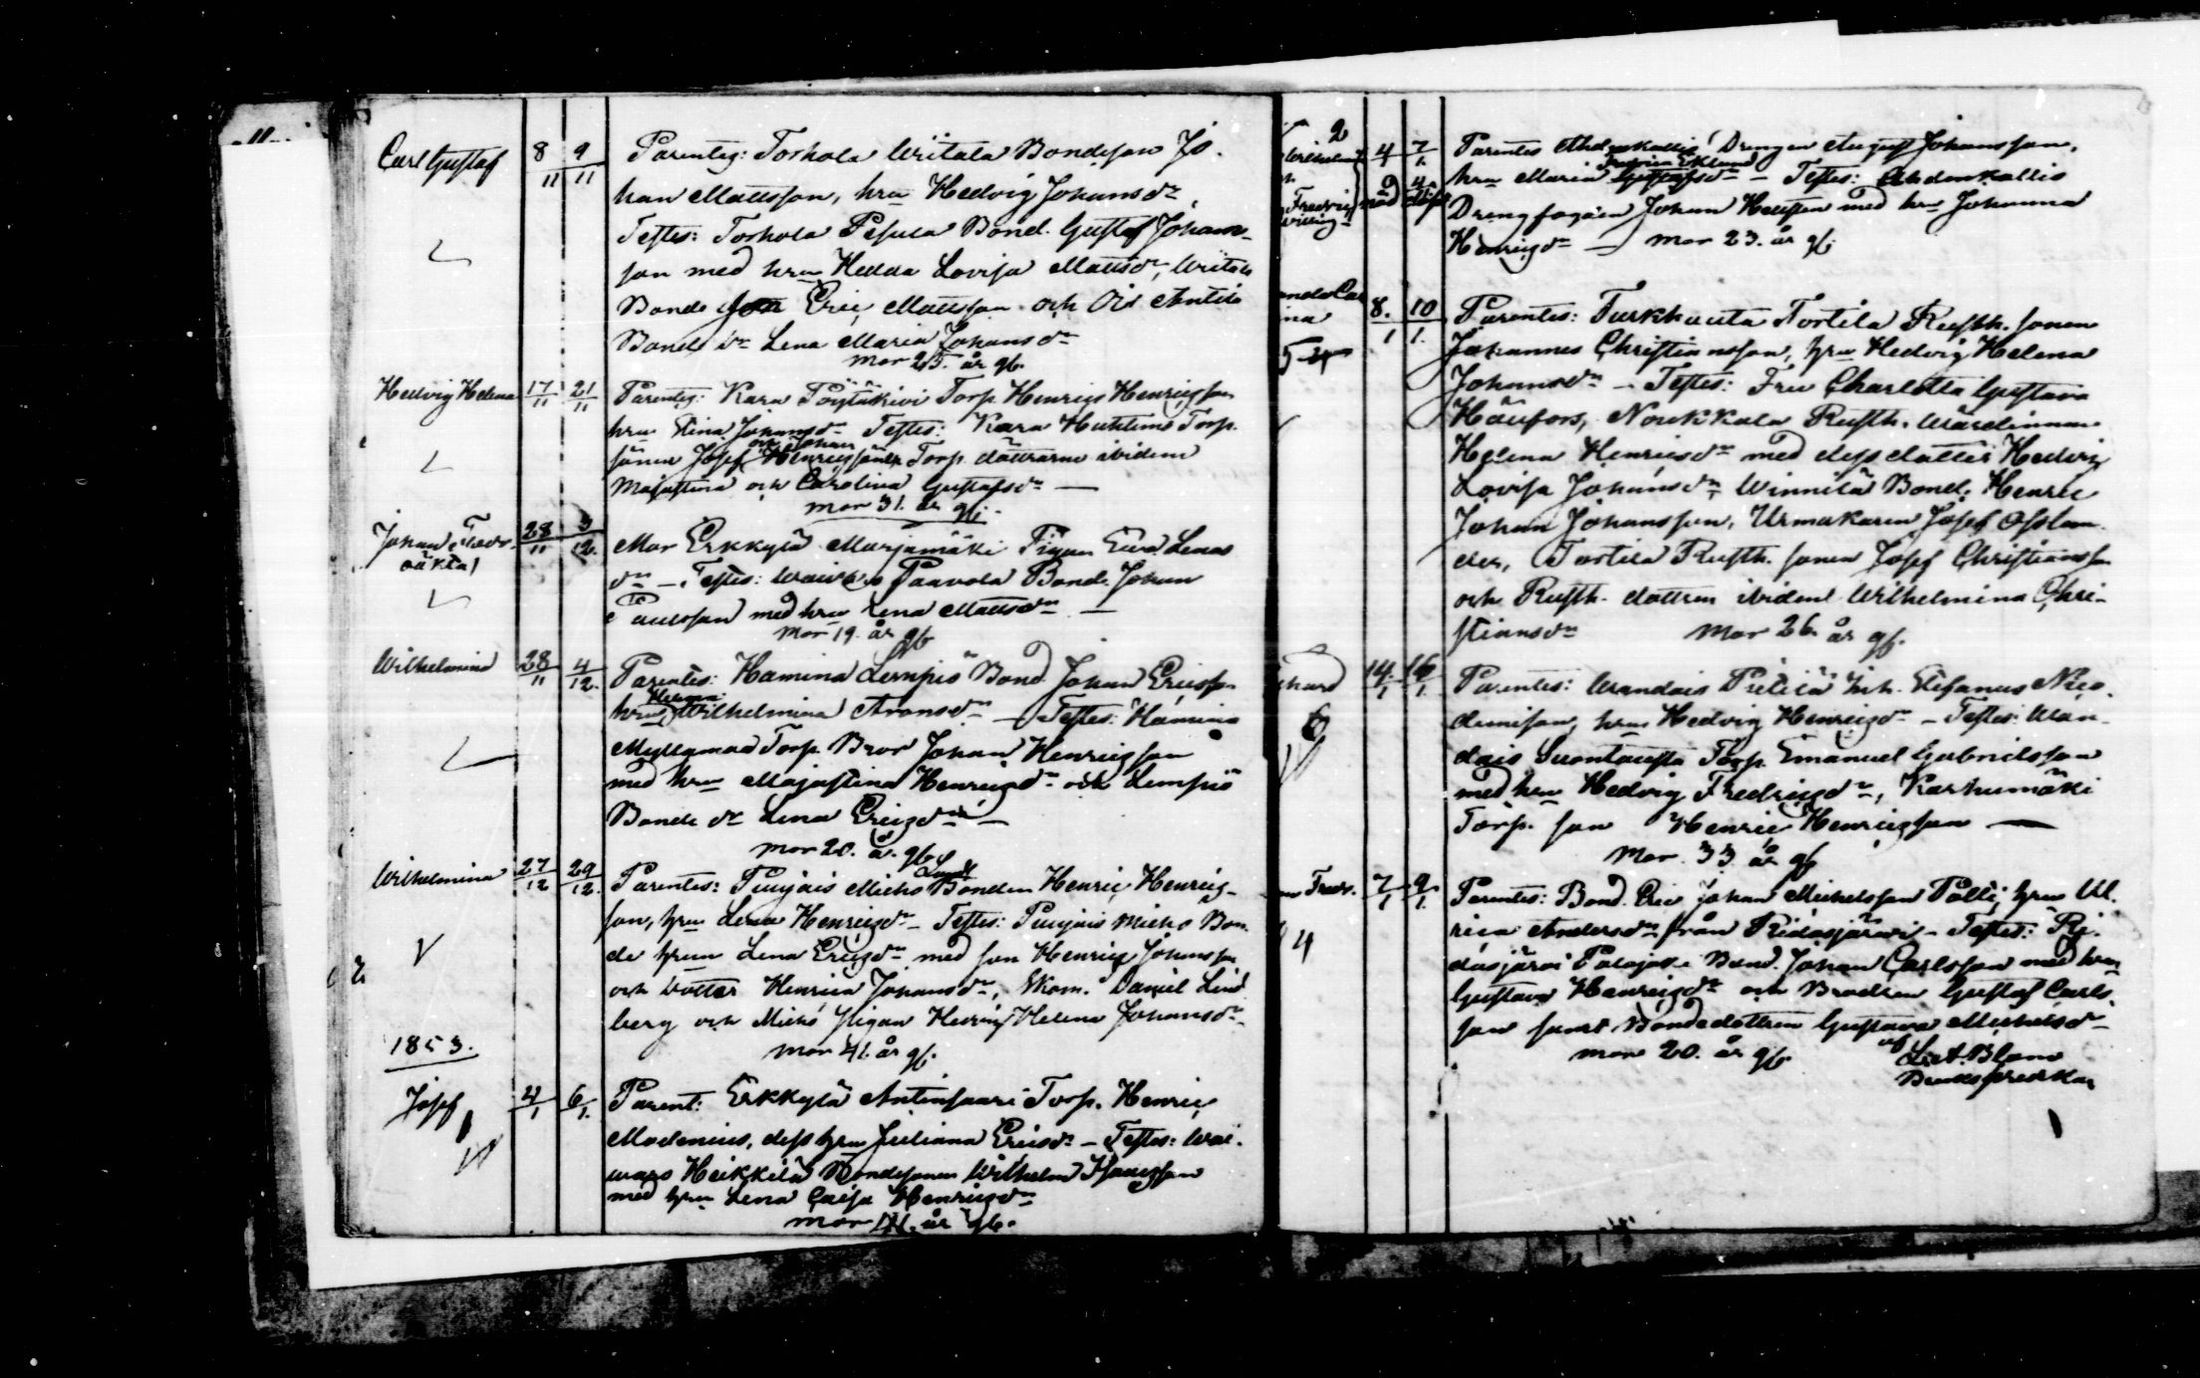 Carl Gustaf 8/11 9/11 Parentes: Torkola Writala Bondeson Jo-
han Mattsson, hru Hedvig Johansdr
Testes: Torkola Pesula Bond. Gustaf Johans-
son med hru Hedda Lovisa Mattsdr, Writala
Bonde son Eric Mattsson och Antila
Bonde dr Lena Maria Johansdr
mor 25. år gl.
Hedvig Helena 17/11 21/11 Parentes: Kara Pöytäkivi Torp. Henric Henricsson
hru Stina Johansdr Testes: Kara Huhtimo Torp.
och Johan
sönen Josef Henricsöner Torp. döttrarne ibidem
Majastina och Carolina Gustafsdr —
mor 31. år gl.
Johan Fredr. 28/11 3/12. Mor Erkkylä Marjamäki Pigan Eva Lenas
oäkta
dr — Testes: Paavola Bond. Johan
Paulsson med hru Lena Mattsdr —
mor 19. år gl.
Wilhelmina 28/11 4/12. Parentes: Hamina Lempiö Bond Johan Ericsson
hru Wilhelmina Aronsdr — Testes: Hamina
Myllymaa Torp. Bror Johan Henricsson
med hru Majastina Henricsdr och Lempiö
Bonde dr Lena Ericsdr —
mor 20. å. gl.
Lund
Wilhelmina 27/12 29/12. Parentes: Punjais Micko Bonden Henric Henrics-
son, hru Lena Henricsdr — Testes: Punjais Micko Bon-
de hrun Lena Ericsdr med son Henric Johansson
och dotter Henrica Johansdr, Skom. Daniel Lind
berg och Micko Pigan Hedvig Helena Johansdr
mor 41. år gl.
1853.
Josef 4/1 6/1. Parent: Erkkylä Antinsaari Torp. Henric
Modenius, dess hru Juliana Ericsdr — Testes: Wai-
wars Heikkilä Bondesonen Wilhelm Isaacsson
med hru Lena Caisa Henricsdr
mor 41. år gl.
2
Wilhelm 4/1 7/1. Parentes Ahdenkallio Drengen August Johansson,
Fredrica Eklund
hru Maria Gustafsdr — Testes: Ahdenkallio
Fredric nöd döpt
Drengfogden Johan Hellsten med hru Johanna
Henricsdr — mor 23. år gl.
8./1 10/1. Parentes: Turkhauta Tortila Rusth. sonen
ina
Johannes Christiansson, hru Hedvig Helena
Johansdr — Testes: Fru Charlotta Gustava
Häufors, Noukkala Rusth. Wärdinnan
Helena Henricsdr med dess dotter Hedvig
Lovisa Johansdr Winnilä Bond. Henric
Johan Johansson, Urmakaren Josef Osslan-
der, Tortila Rusth. sonen Josef Christiansson
och Rusth. dottren ibidem Wilhelmina Chri-
stiansdr mor 26. år gl.
14./1 16/1. Parentes: Wandais Pietilä Inh. Stefanus Nico-
demison, hru Hedvig Henricsdr — Testes: Wan-
6
dais Suontausta Torp. Emanuel Gabrielsson
med hru Hedvig Fredricsdr, Karhumäki
Torp. son Henric Henricsson —
mor. 33 år gl
Fredr. 7/1 9/1. Parentes: Bond. Eric Johan Michelsson Pälli, hru Ul-
rica Andersdr från Ridasjärvi — Testes: Ri-
4
dasjärvi Bond. Johan Carlsson med hru
Gustava Henricsdr och Brodren Gustaf Carls-
son samt Bondedottren Gustava Michelsdr
mor 20. år gl. af